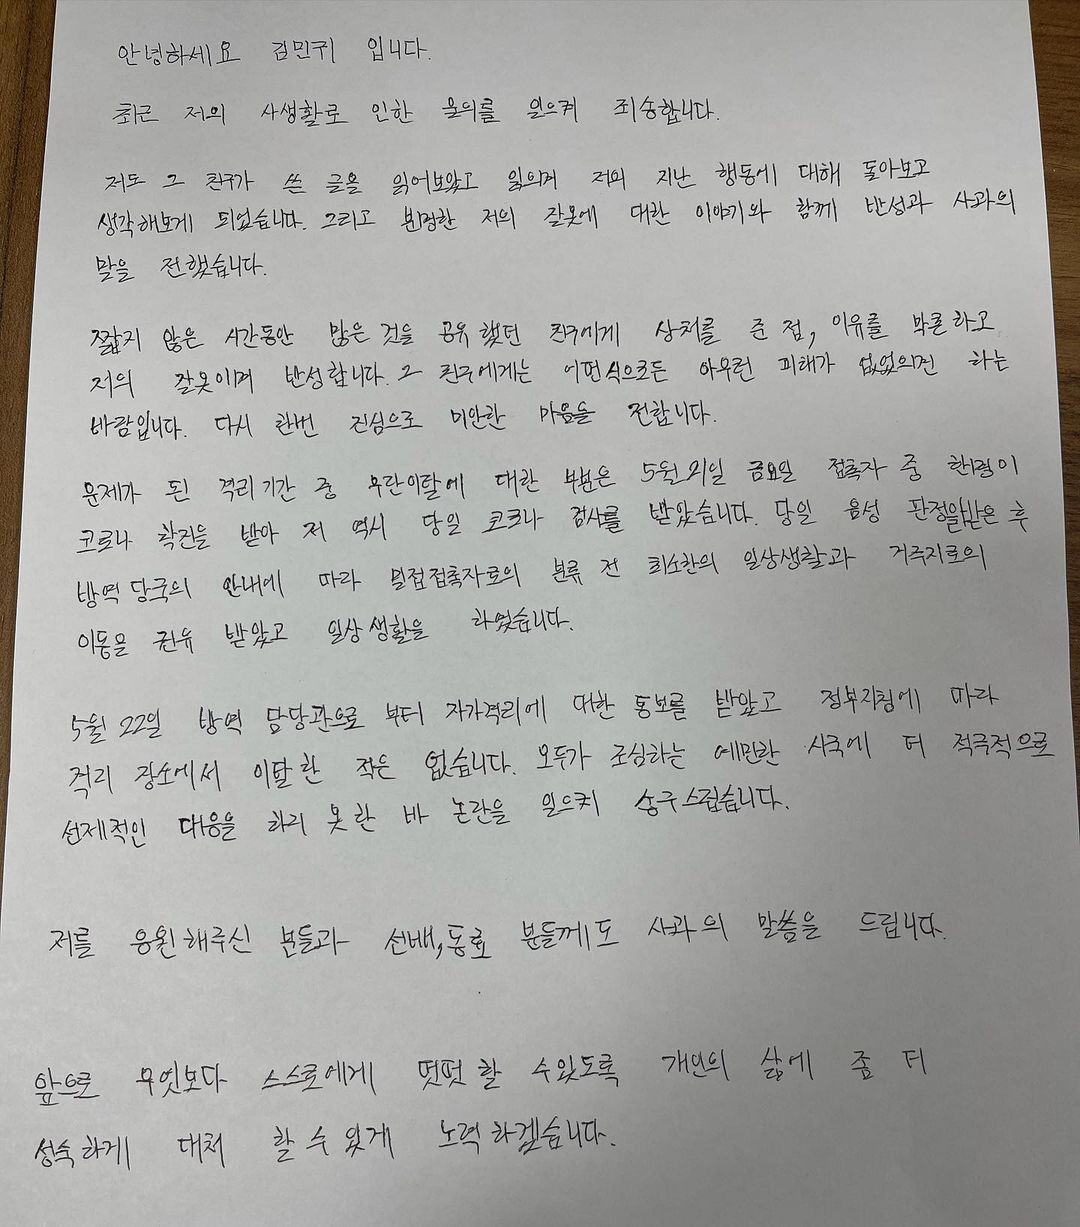 안녕하세요 김민귀 입니다.
최근 저의 사생활로 인한 물의를 일으켜 죄송합니다.
저도 그 친구가 쓴 글을 읽어보았고 읽으며 저의 지난 행동에 대해 돌아보고
생각해보게 되었습니다. 그리고 분명한 저의 잘못에 대한 이야기와 함께 반성과 사과의
말을 전했습니다.
짧지 않은 시간동안 많은 것을 공유했던 친구에게 상처를 준 점, 이유를 막론하고
저의 잘못이며 반성합니다. 그 친구에게는 어떤식으로든 아무런 피해가 없었으면 하는
바람입니다. 다시 한번 진심으로 미안한 마음을 전합니다.
문제가 된 격리기간 중 무단이탈에 대한 부분은 5월 21일 금요일 접촉자 중 한명이
코로나 확진을 받아 저 역시 당일 코로나 검사를 받았습니다. 당일 음성 판정을받은 후
방역당국의 안내에 따라 밀접접촉자로의 분류 전 최소한의 일상생활과 거주지로의
이동을 권유 받았고 일상생활을 하였습니다.
5월 22일 방역 담당관으로 부터 자가격리에 대한 통보를 받았고 정부지침에 따라
격리 장소에서 이탈한 적은 없습니다. 모두가 조심하는 예민한 시국에 더 적극적으로
선제적인 대응을 하지 못한 바 논란을 일으켜 송구스럽습니다.
저를 응원해주신 분들과 선배,동료 분들께도 사과의 말씀을 드립니다.
앞으로 무엇보다 스스로에게 떳떳할 수있도록 개인의 삶에 좀 더
성숙하게 대처 할 수 있게 노력하겠습니다.